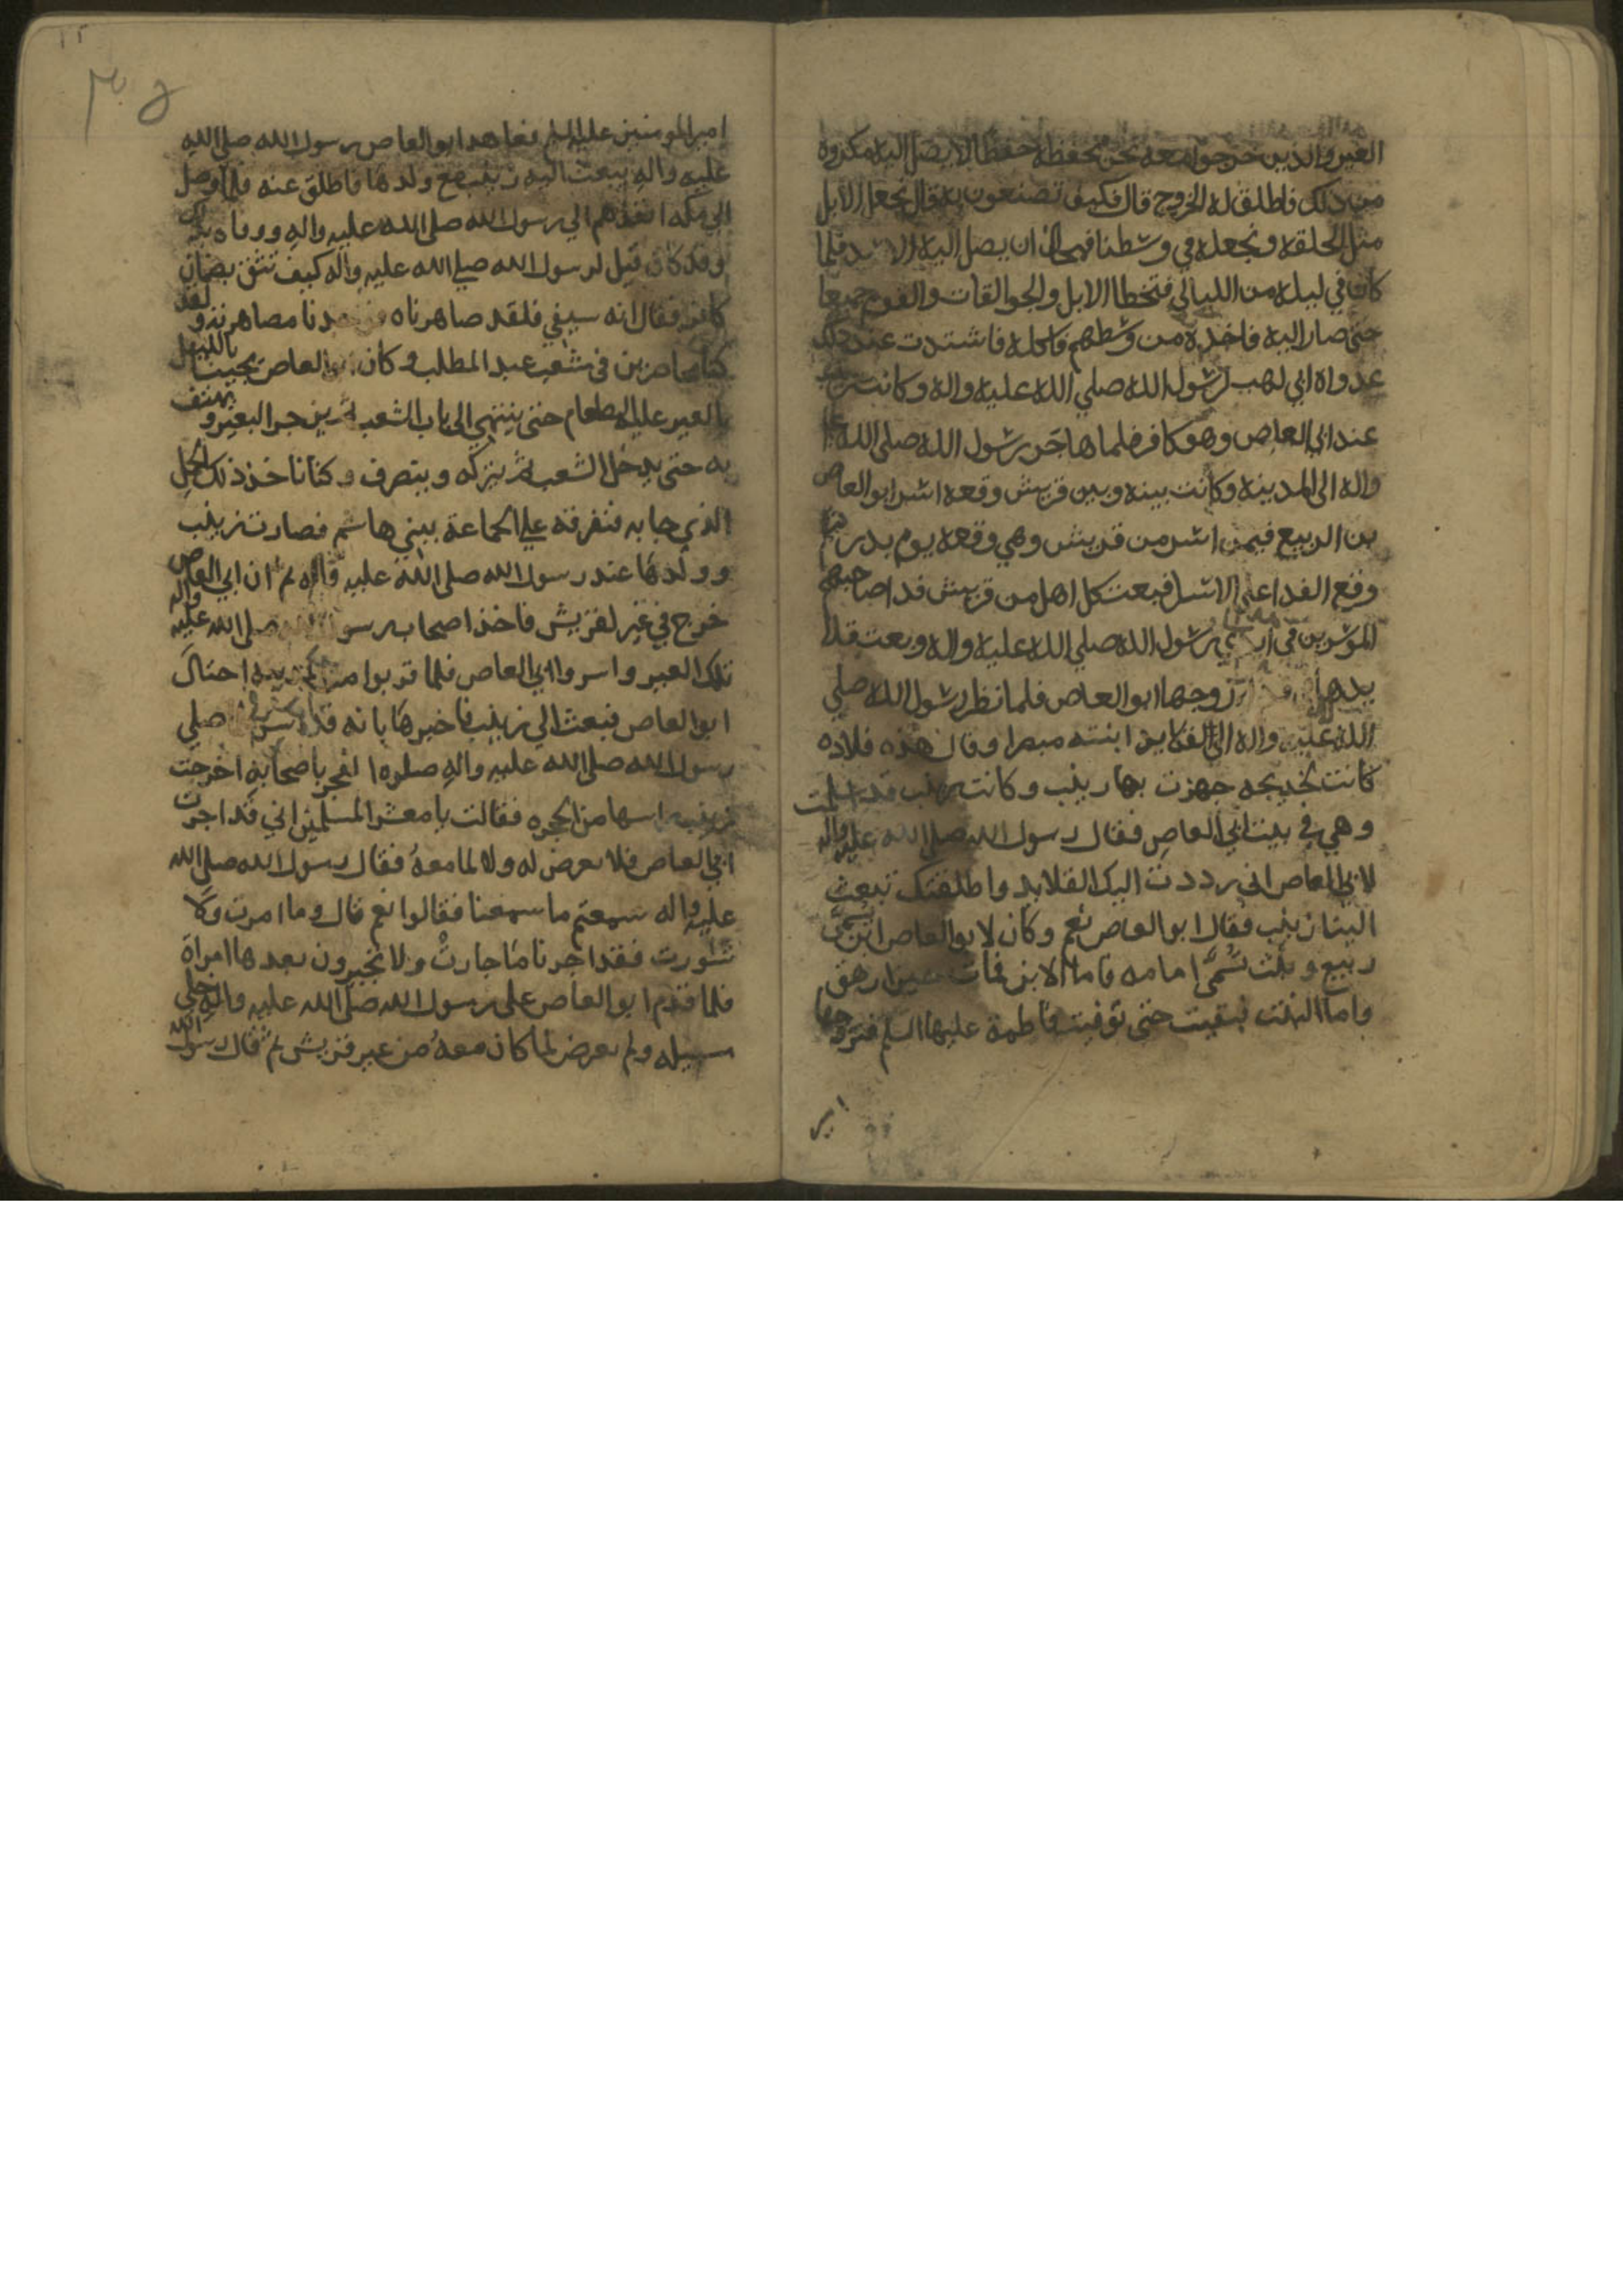 العير والذين خرجوا معه نحن نحفظه حفظا لا يصل اليه مكروه
من ذلك فاطلق له الخروج قال فكيف تصنعون به قال نجعل الابل
مثل الحلقه ونجعله في وسطنا ان يصل اليه الاسد فلما
كان في ليله من الليالي فتخطا الابل والجوالقات والقوم جميعا
حتى صار اليه فاخذه من وسطهم فاكله فاشتدت عند ذلك
عدواة ابي لهب لرسول الله صلي الله عليه واله وكانت زينب
عند ابي العاص وهو كافر فلما هاجر رسول الله صلى الله عليه
واله الى المدينه وكانت بينه وبين قريش وقعه اسر ابو العاص
بن الربيع فيمن اسر من قريش وهي وقعه يوم بدر ثم
وقع الفدا على الاسرا فبعث كل اهل من قريش فدا صاحبهم
الموسورين في رسول الله صلي الله عليه واله وبعث
زوجها ابو العاص فلما نظر رسول الله صلي
الله عليه واله الى القلايد ابنته وقال هذه قلاده
كانت لخديجه جهزت بها زينب وكانت زينب قد اسلمت
وهي في بيت ابي العاص فقال رسول الله صلى الله عليه واله
لابي العاص اني رددت اليك القلايد واطلقتك تبعث
الينا زينب فقال ابو العاص نعم وكان لابو العاص ابن يسمى
ربيع وبنت تسمى امامه فاما الابن فمات حين راهق
واما البنت فبقيت حتى توفيت فاطمة عليها السلم فتزوجها
امير
١٢
امير المومنين عليه السلم فعاهد ابو العاص رسول الله صلى الله
عليه واله يبعث اليه زينب مع ولدها فاطلق عنه فلما وصل
الي مكه انفذهم الي رسول الله صلى الله عليه واله ووفاه بذلك
وقد كان قيل لرسول الله صلي الله عليه واله كيف تثق بضمان
كافر فقال انه سيفي فلقد صاهرناه مصاهرته ولقد
كنا محاصرين في شعب عبد المطلب وكان ابو العاص يجينا بالليل
بالعير عليها الطعام حتى ينتهي الى باب الشعب ثم يزجر البعير ويهتف
به حتى يدخل الشعب ثم يتركه وينصرف وكنا ناخذ ذلك الحمل
الذي جا به فنفرقه علي الجماعة ببني هاشم فصارت زينب
وولدها عند رسول الله صلى الله عليه واله ثم ان ابي العاص
خرج في عير لقريش فاخذ اصحاب رسول الله صلى الله عليه واله
تلك العير واسروا ابي العاص فلما قربوا من المدينه احتال
ابو العاص فبعث الي زينب فاخبرها بانه قد اسر صلي
رسول الله صلى الله عليه واله صلوه الفجر باصحابه اخرجت
زينب راسها من الحجره فقالت يا معشر المسلمين اني قد اجرت
ابي العاص فلا يعرض له ولا لما معه فقال رسول الله صلى الله
عليه واله سمعتم ما سمعنا فقالوا نعم قال وما امرت ولا
شورت فقد اجرنا ما جارت ولا تجيرون بعدها امراة
فلما قدم ابو العاص على رسول الله صلى الله عليه واله خلي
سبيله ولم يعرض لما كان معه من عير قريش ثم قال رسول الله